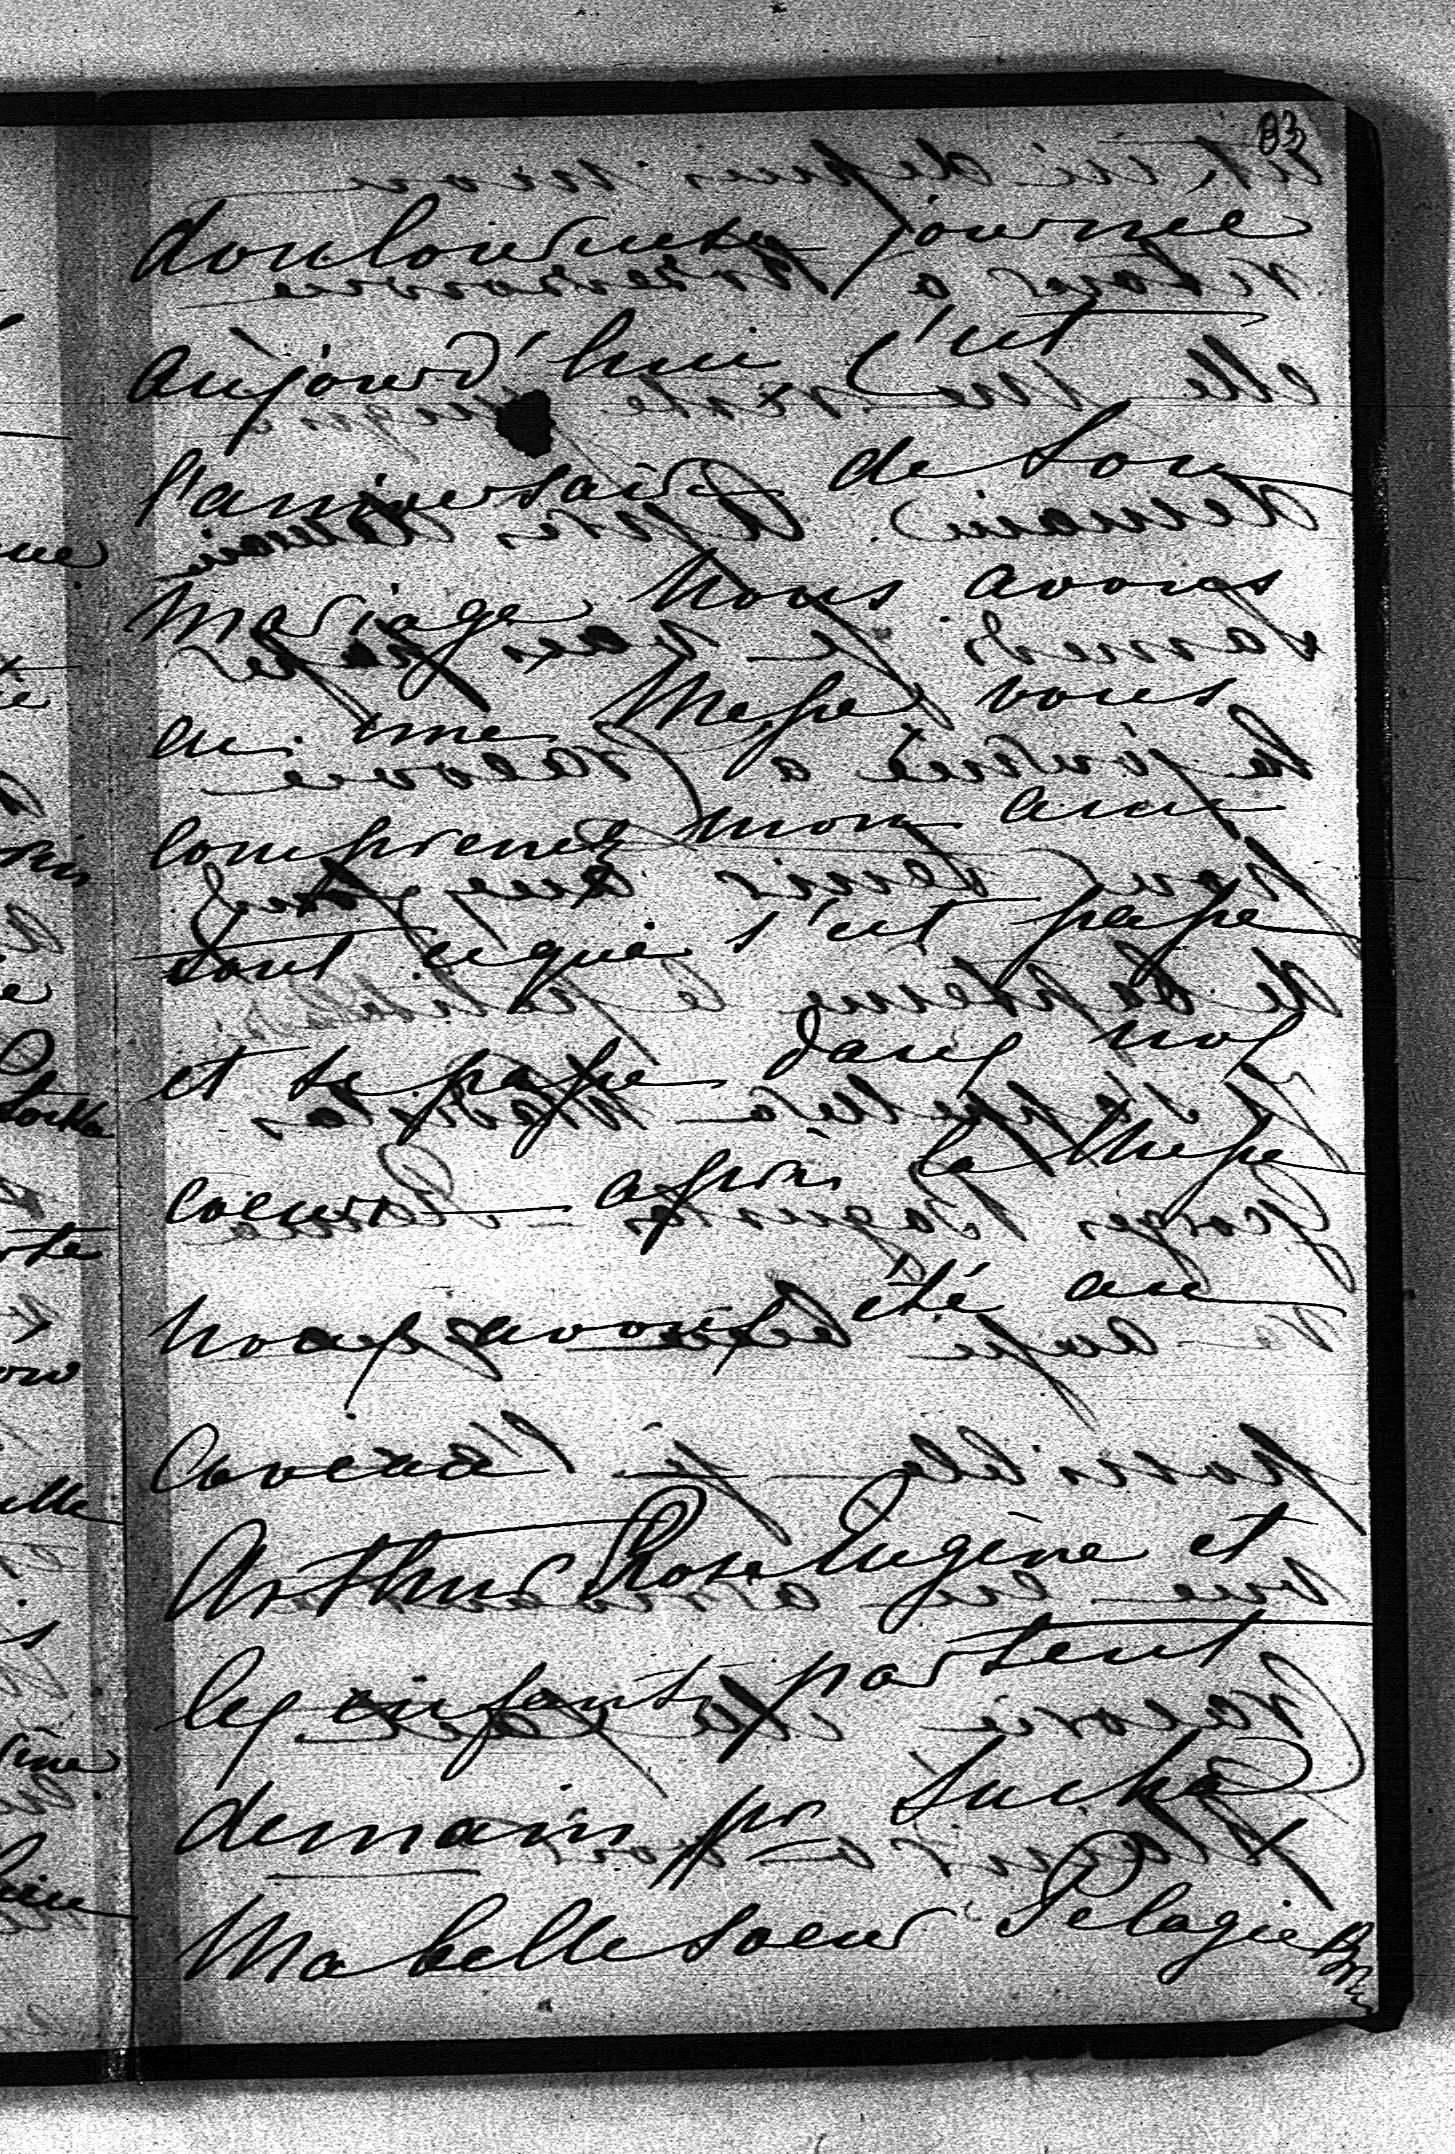 83
douloureuse journée
aujourd'hui c'est
l'aniversaire de son
mariage nous avons
eu une Messe vous
comprenez mon amie
tout ce qui s'est passe
et se passe dans nos
coeurs après la Messe
nous avons été au
caveau
Arthur Rose Eugène et
les enfants partent
demain pr Sucha
Ma belle soeur Pélagie